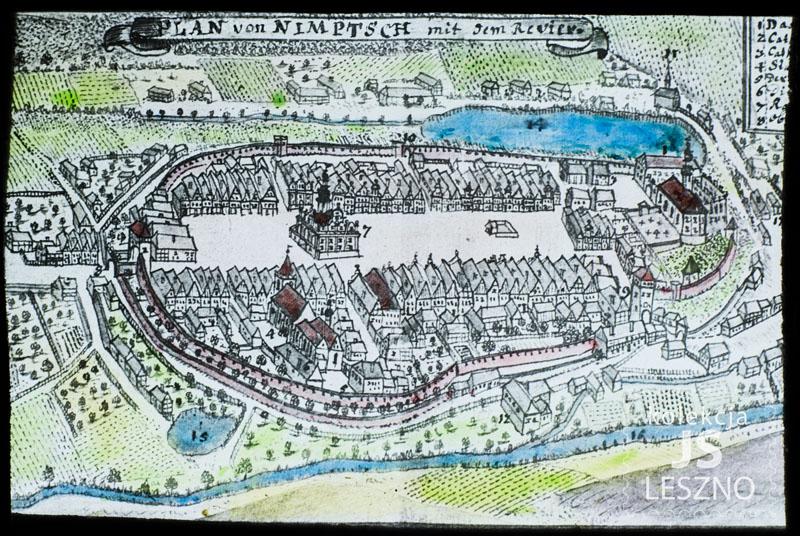 PLAN von NIMPTSCH mit dem Revier.
1. Da
2. Cat
3. Cat
4. St
5. Der
6.
7. Ra
8.
14
7
2
4
9
15
12
16
kolekcja
JS
LESZNO